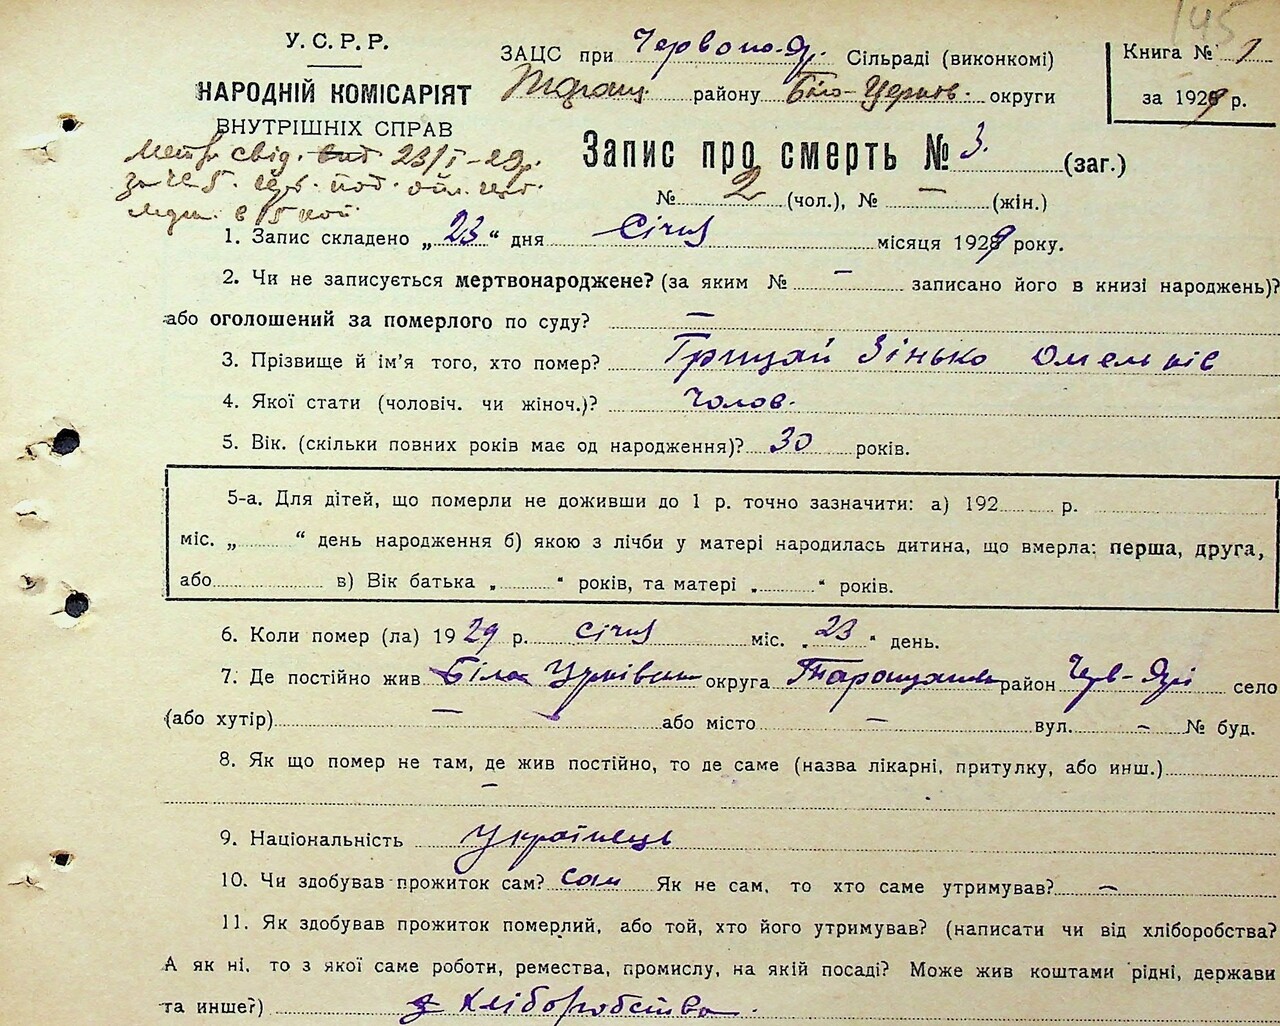 145
У. С. Р. Р.
НАРОДНІЙ КОМІСАРІЯТ
ВНУТРІШНІХ СПРАВ
ЗАЦС при Червоно-Яр. Сільраді (виконкомі)
Таращ. району Біло-Церков. округи
Книга № 1
за 1929 р.
Метр. свід. 23/I-29 р.
за № 5.
в 15 коп.
Запис про смерть № 3. (заг.)
№ 2 (чол.), № — (жін.)
1. Запис складено „ 23 “ дня Січня місяця 1929 року.
2. Чи не записується мертвонароджене? (за яким № — записано його в книзі народжень)?
або оголошений за померлого по суду? —
3. Прізвище й ім’я того, хто помер? Грицай Зінько Омельків
4. Якої стати (чоловіч. чи жіноч.)? Чолов.
5. Вік. (скільки повних років має од народження)? 30 років.
5-а. Для дітей, що померли не доживши до 1 р. точно зазначити: а) 192 р.
міс. „ “ день народження б) якою з лічби у матері народилась дитина, що вмерла: перша, друга,
або в) Вік батька „ “ років, та матері „ “ років.
6. Коли помер (ла) 1929 р. січня міс. „ 23 “ день.
7. Де постійно жив Біла Церківськ округа Таращанськ район Черв-Ярі село
(або хутір) — або місто — вул. — № буд.
8. Як що помер не там, де жив постійно, то де саме (назва лікарні, притулку, або инш.)
—
9. Національність Українець
10. Чи здобував прожиток сам? Сам Як не сам, то хто саме утримував? —
11. Як здобував прожиток померлий, або той, хто його утримував? (написати чи від хліборобства?
А як ні, то з якої саме роботи, ремества, промислу, на якій посаді? Може жив коштами рідні, держави
та инше?) з хліборобства.